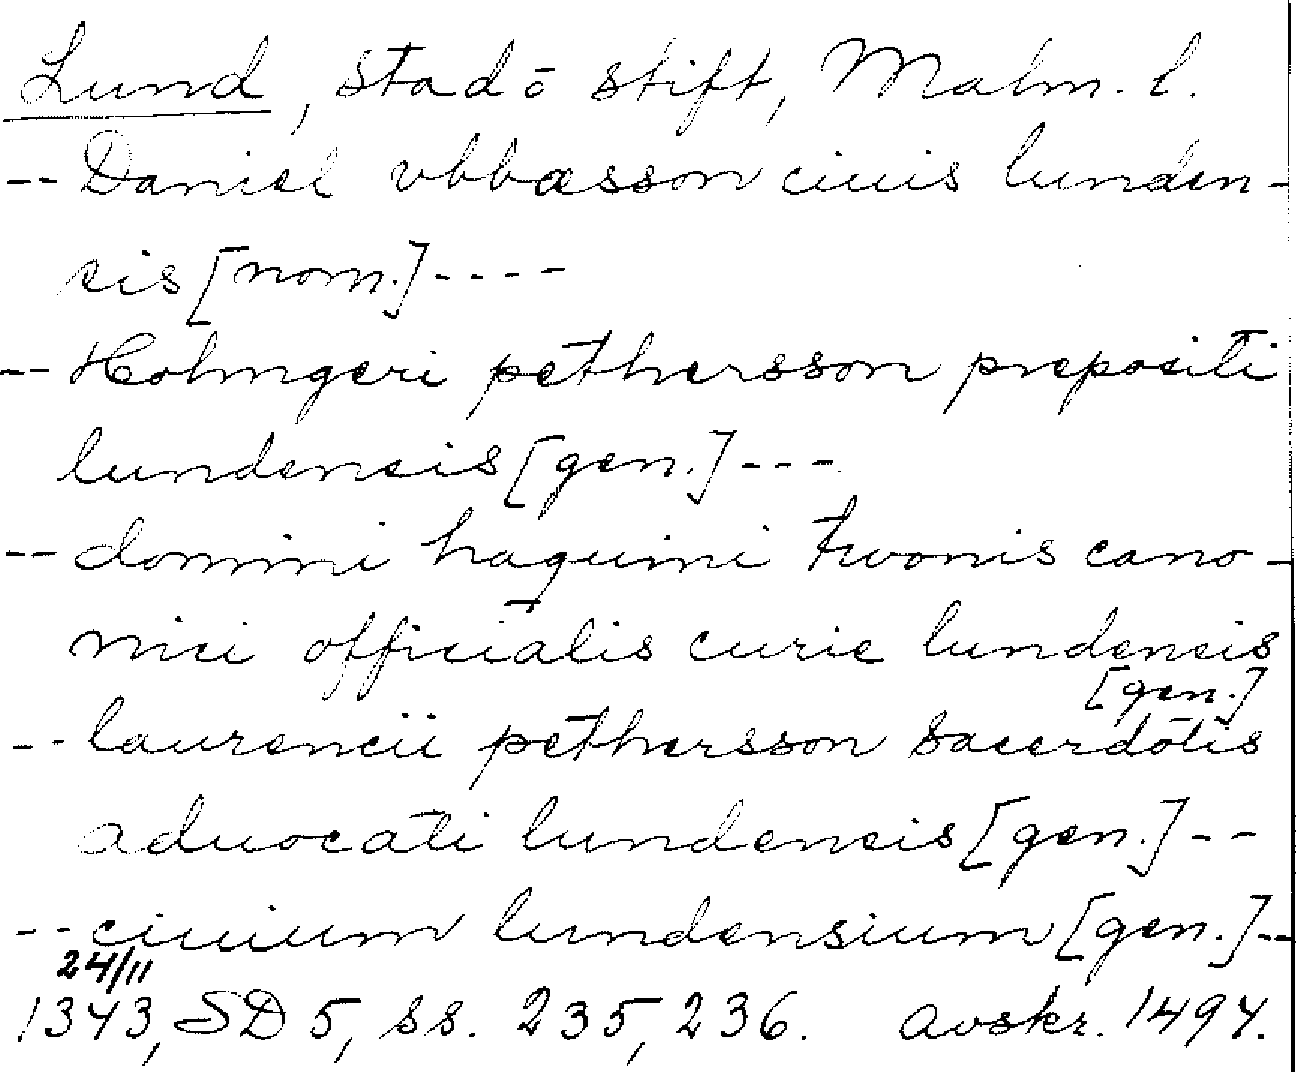 Lund, stad ō stift, Malm. l.
-- Daniel vbbæsson ciuis lunden-
sis [nom.] ----
-- Holmgeri pethersson prepositi
lundensis [gen.] ---
-- domini haquini twonis cano-
nici officialis curie lundensis
[gen.]
-- laurencii pethersson sacerdotis
aduocati lundensis [gen.] --
-- ciuium lundensium [gen.] --
24/11
1343, SD 5, ss. 235, 236. avskr. 1494.